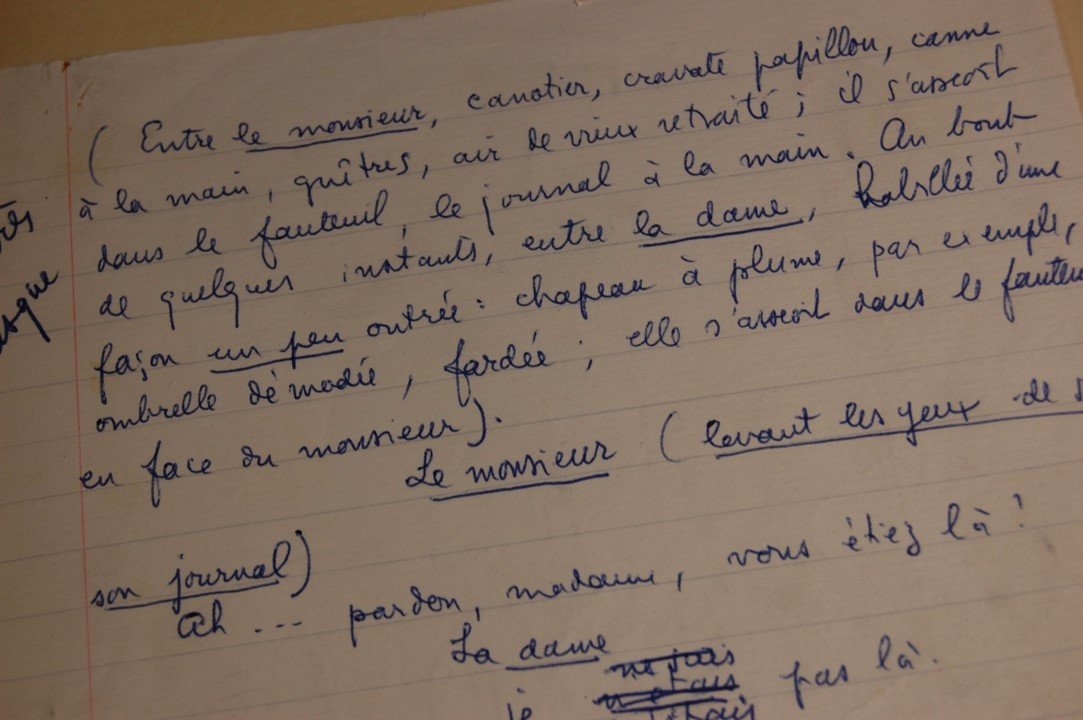 ( Entre le monsieur, canotier, cravate papillon, canne
à la main, guêtres, air de vieux retraité ; il s'asseoit
dans le fauteuil, le journal à la main. Au bout
de quelques instants, entre la dame, habillée d'une
façon un peu outrée : chapeau à plume, par exemple,
ombrelle démodée, fardée ; elle s'asseoit dans le fauteu
en face du monsieur).
Le monsieur ( levant les yeux de s
son journal)
Ah ... pardon, madame, vous étiez là !
La dame
je pas là.